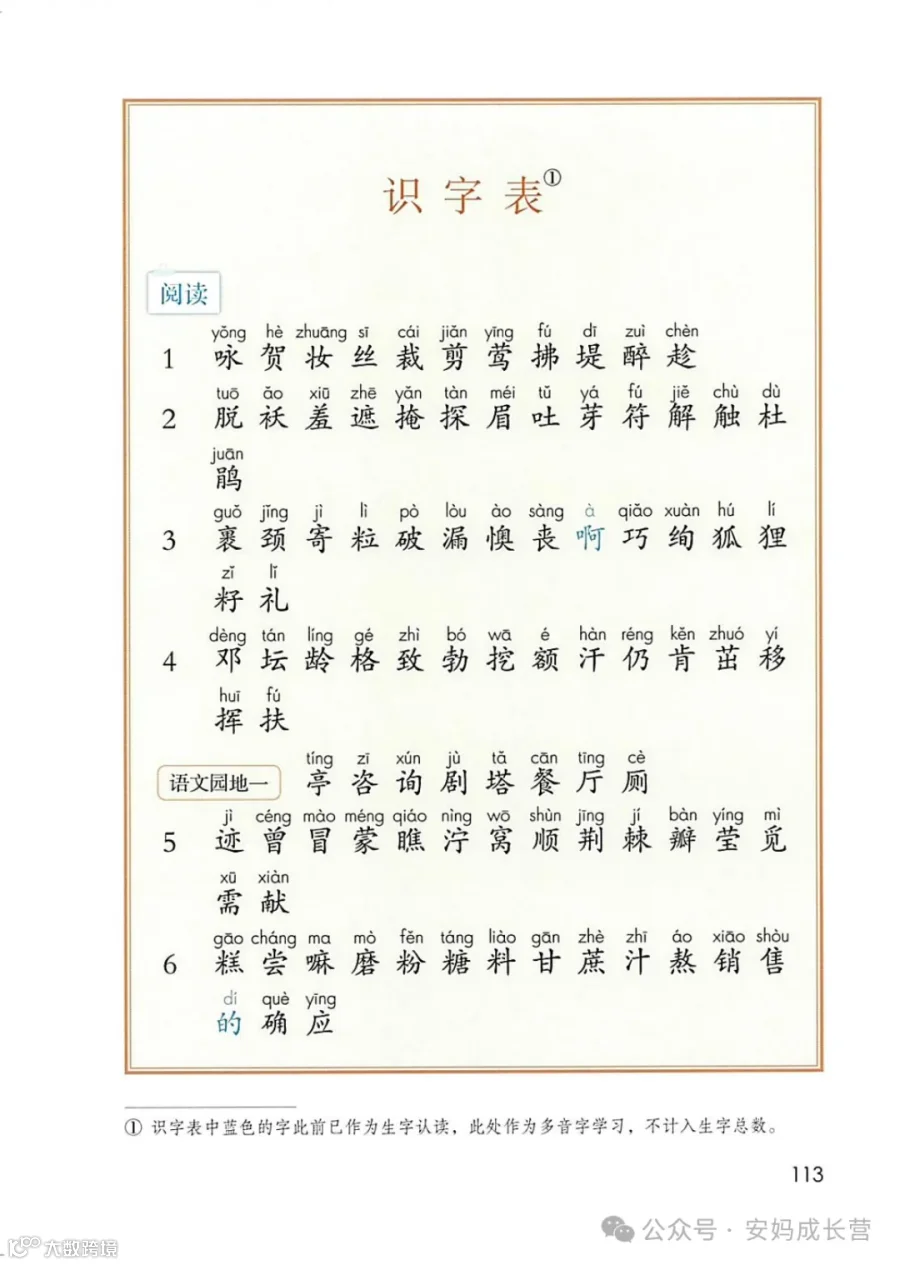 识字表①
阅读
yǒng hè zhuāng sī cái jiǎn yīng fú dī zuì chèn
1 咏 贺 妆 丝 裁 剪 莺 拂 堤 醉 趁
tuō ǎo xiū zhē yǎn tàn méi tǔ yá fú jiě chù dù
2 脱 袄 羞 遮 掩 探 眉 吐 芽 符 解 触 杜
juān
鹃
guǒ jǐng jì lì pò lòu ào sàng à qiǎo xuàn hú lí
3 裹 颈 寄 粒 破 漏 懊 丧 啊 巧 绚 狐 狸
zǐ lǐ
籽 礼
dèng tán líng gé zhì bó wā é hàn réng kěn zhuó yí
4 邓 坛 龄 格 致 勃 挖 额 汗 仍 肯 茁 移
huī fú
挥 扶
tíng zī xún jù tǎ cān tīng cè
语文园地一 亭 咨 询 剧 塔 餐 厅 厕
jì céng mào méng qiáo nìng wō shùn jīng jí bàn yíng mì
5 迹 曾 冒 蒙 瞧 泞 窝 顺 荆 棘 瓣 莹 觅
xū xiàn
需 献
gāo cháng ma mò fěn táng liào gān zhè zhī áo xiāo shòu
6 糕 尝 嘛 磨 粉 糖 料 甘 蔗 汁 熬 销 售
dí què yīng
的 确 应
① 识字表中蓝色的字此前已作为生字认读，此处作为多音字学习，不计入生字总数。
113
公众号·安妈成长营
大数跨境